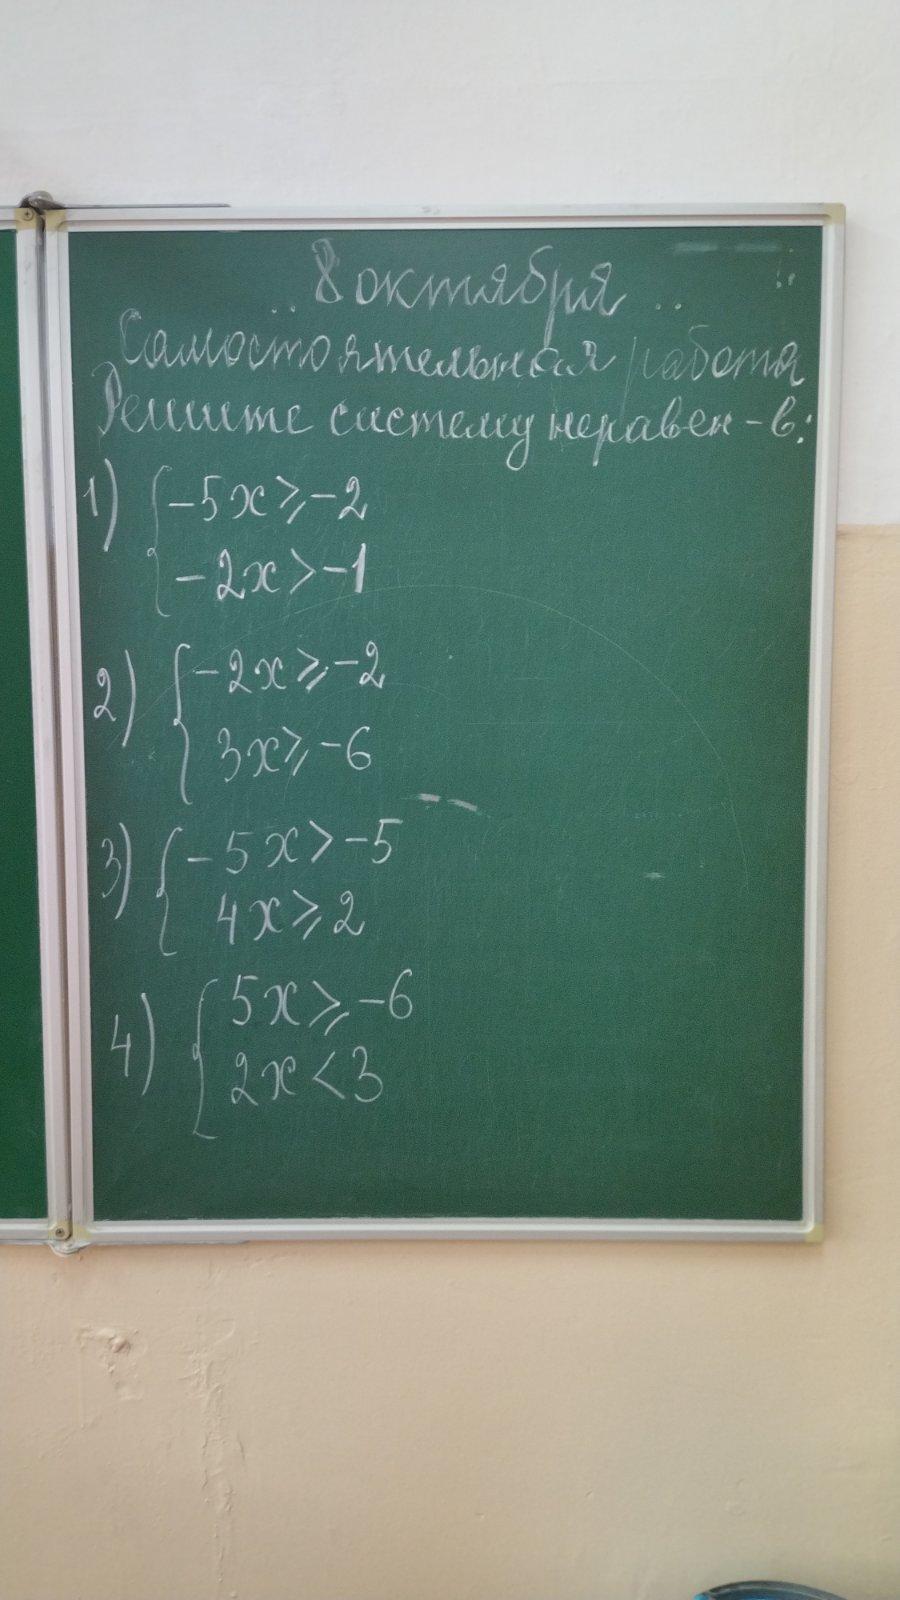 8 октября
Самостоятельная работа
Решите систему неравен-в:
1) { -5x ⩾ -2
-2x > -1
2) { -2x ⩾ -2
3x ⩾ -6
3) { -5x > -5
4x ⩾ 2
4) { 5x ⩾ -6
2x < 3